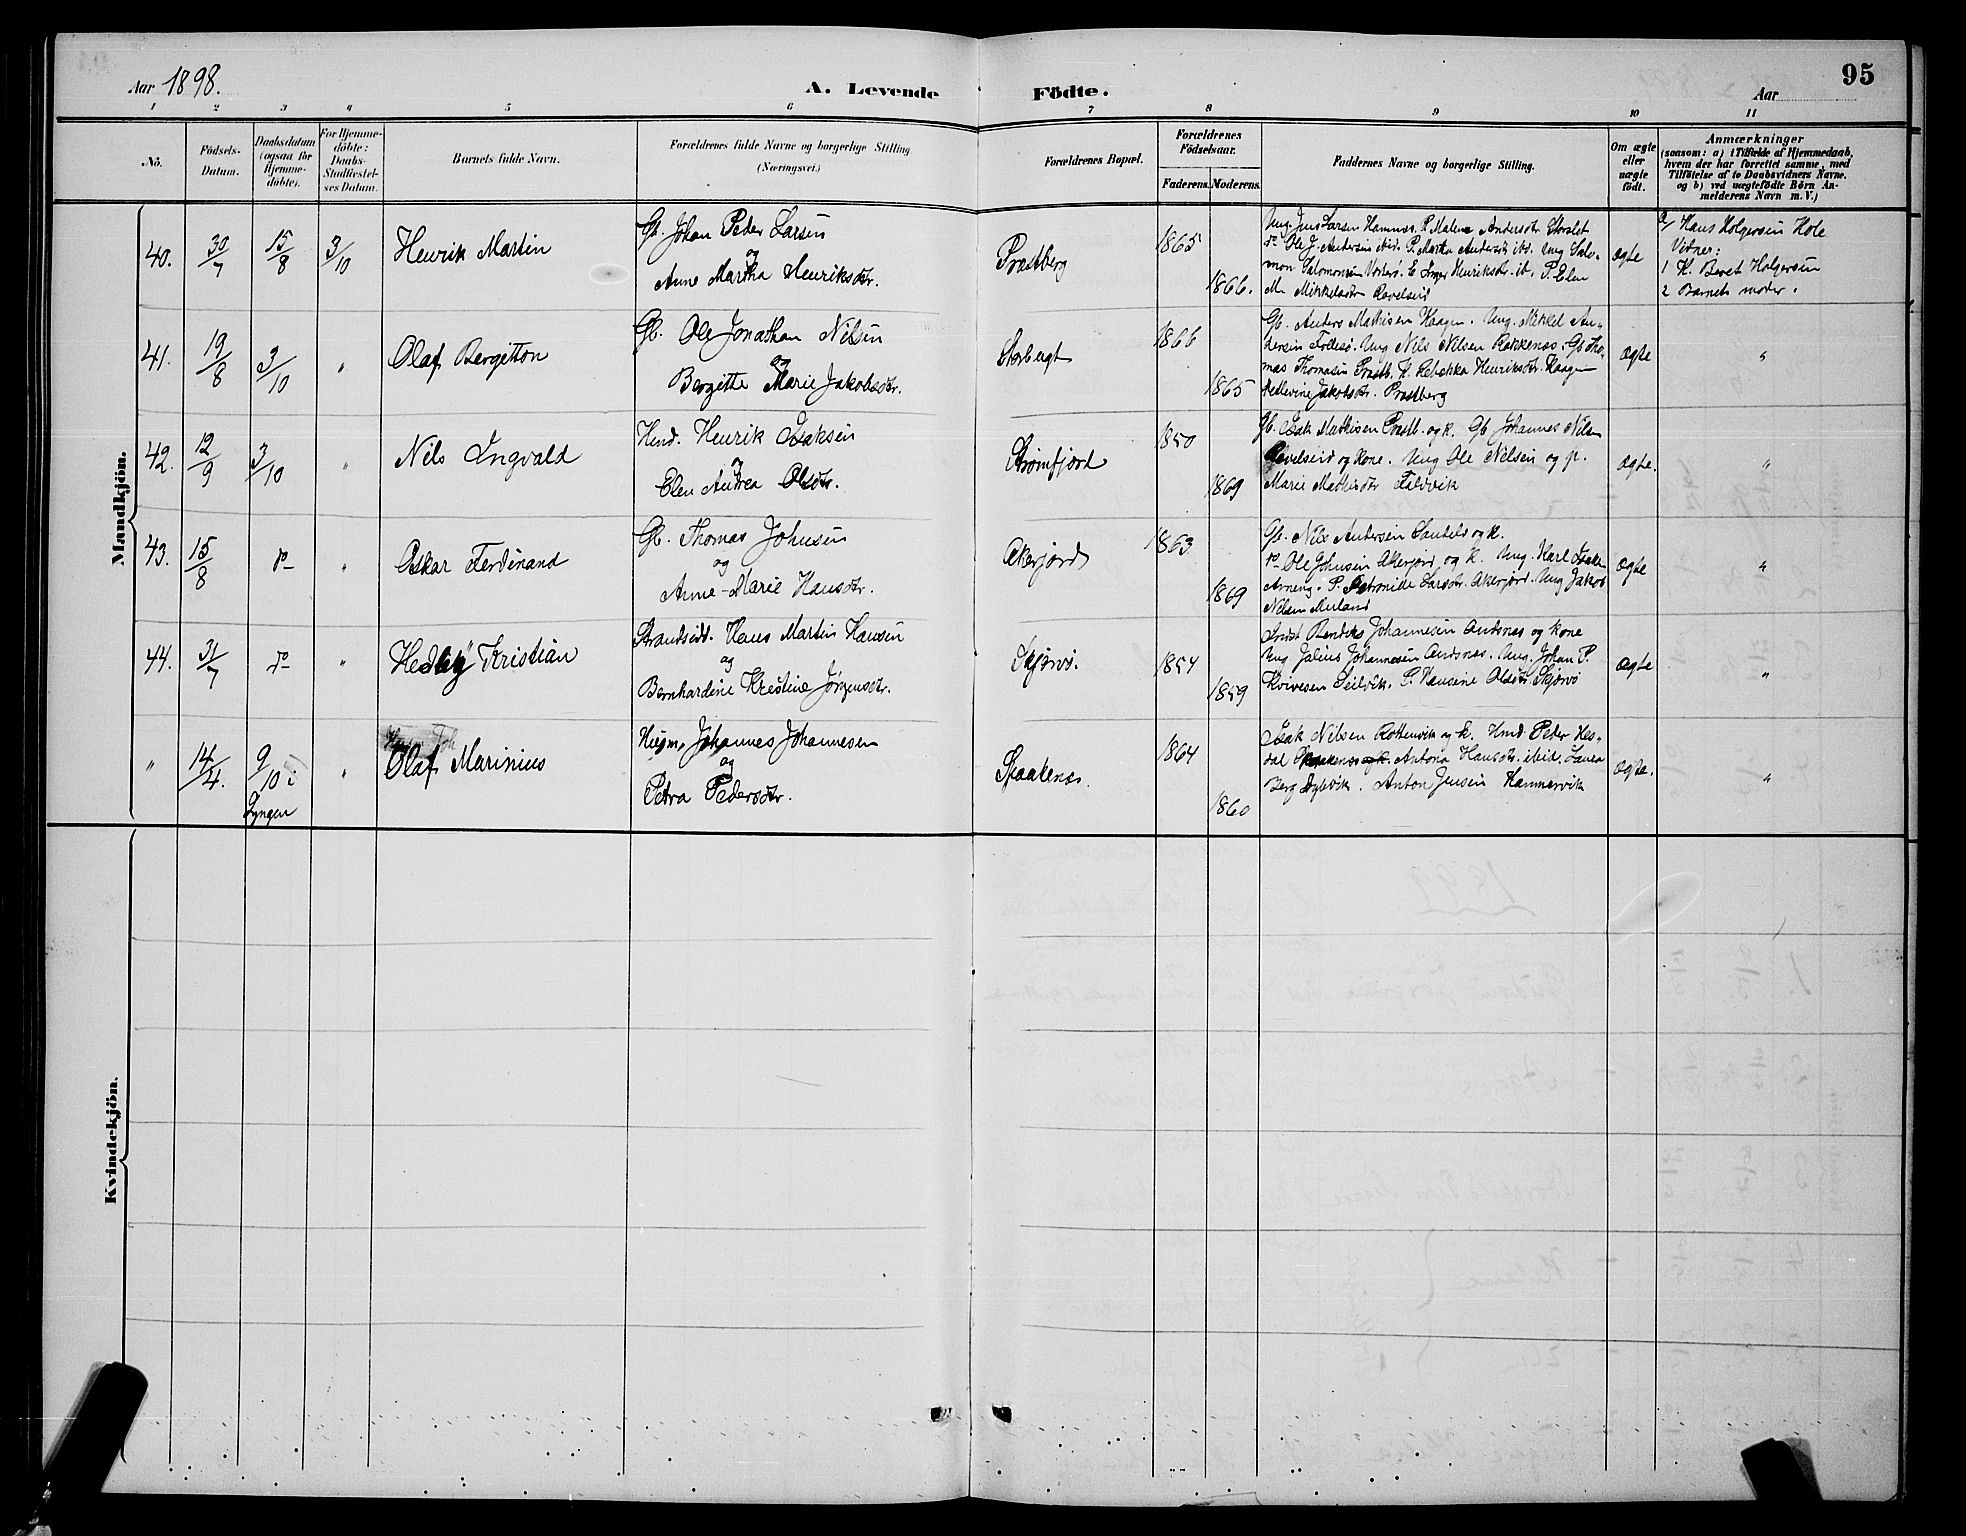 Aar 1898.
A. Levende Födte.
Aar
95
1 2 3 4 5 6 7 8 9 10 11
No.
Födsels-
Datum.
Daabsdatum
(ogsaa for
Hjemme-
döbte).
For Hjemme-
döbte:
Daabs-
Stadfæstel-
ses Datum.
Barnets fulde Navn.
Forældrenes fulde Navne og borgerlige Stilling
(Næringsvei.)
Forældrenes Bopæl.
Forældrenes
Födselsaar.
Faderens. Moderens.
Faddernes Navne og borgerlige Stilling.
Om ægte
eller
uægte
födt.
Anmærkninger
(saasom: a) i Tilfælde af Hjemmedaab,
hvem der har forrettet samme, med
Tilföielse af to Daabsvidners Navne.
og b) ved uægtefödte Börn An-
melderens Navn m. V.)
Mandkjön.
40. 30/7 15/8 3/10
Henrik Martin
Gb. Johan Peder Larsen
og
Anne Martha Henriksdtr.
Præstberg
1865
1866.
Ung. Jens Larsen Hamnes. P. Malene Andersdtr Storslet
do Ole J. Andersen ibid. P. Martha Andersdtr ibd. Ung Salo-
mon Salomonsen Vorterø. E Inger Henriksdtr. ib. P. Elen
M. Mikkelsdtr Ravelseid
ægte
a/ Hans Holgersen Hole
Vidner:
1 K. Beret Holgersen
2 Barnets moder.
41. 19/8 3/10 "
Olaf Bergitton
Gb. Ole Jonathan Nilsen
og
Bergitte Marie Jakobsdtr.
Storbugt
1866
1865
Gb. Anders Mathisen Haagen. Ung. Mikkel An-
dersen Follesø. Ung Nils Nilsen Rakkenæs. Gb Tho-
mas Thomasen Præstb. K. Rebekka Henriksdtr. Haagen
Hedevine Jakobsdtr. Præstberg
ægte
"
42. 12/9 3/10 "
Nils Ingvald
Hmd. Henrik Isaksen
og
Elen Andrea Olsdtr.
Strømfjord
1850
1869
Gb. Isak Mathisen Præstb. og k. Gb Johannes Nilsen
Ravelseid og kone. Ung Ole Nilsen og p.
Marie Mathisdtr Fældvik
ægte.
"
43. 15/8 do "
Oskar Ferdinand
Gb. Thomas Johnsen
og
Anne-Marie Hansdtr.
Akerjord
1863
1869
Gb. Nils Andersen og k.
do Ole Johnsen Akerjord og k. Ung. Karl Isaks.
P. Petronide Larsdtr. Akerjord. Ung Jakob
Nilsen
ægte
"
44. 31/7 do "
Hedley Kristian
Strandsidd. Hans Martin Hansen
og
Bernhardine Kristine Jørgensdtr.
Skjervø.
1854
1859
Bendiks Johannesen Andsnæs og kone
Ung Julius Johannesen Andsnæs. Ung. Johan P.
Kvivesen Seilvik. P. Hansine Olsdtr. Skjervø
ægte
"
" 14/4 9/10 i
Lyngen
"
Olaf Marinius
Husm. Johannes Johannesen
og
Petra Pedersdtr.
Spaakenæs.
1864
1860
Isak Nilsen Rottenvik og k. Hmd. Peder Hes-
dal Antona Hansdtr. ibid. Laura
Berg Dybvik. Anton Jensen Hammervik
ægte.
"
Kvindekjön.